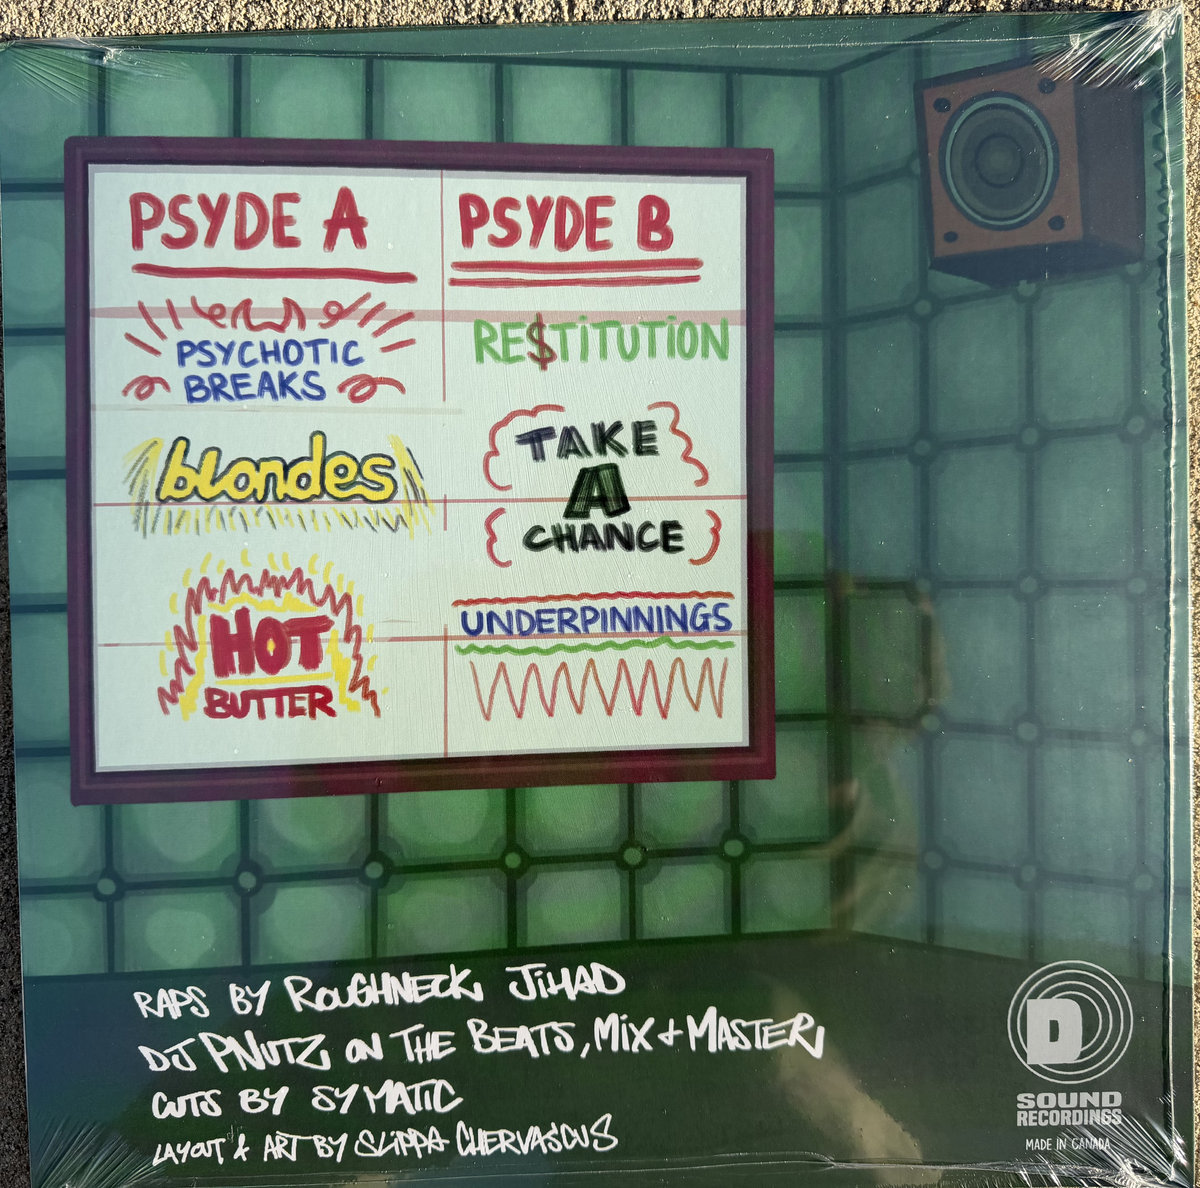 PSYDE A
PSYCHOTIC
BREAKS
blondes
HOT
BUTTER
PSYDE B
RE$TiTUTiON
TAKE
A
CHANCE
UNDERPINNINGS
RAPS BY ROUGHNECK JiHAD
DJ PNUTZ ON THE BEATS, MiX + MASTER
CUTS BY SYMATIC
LAYOUT & ART BY SLIPPA CHERVASCUS
D
SOUND
RECORDINGS
MADE IN CANADA